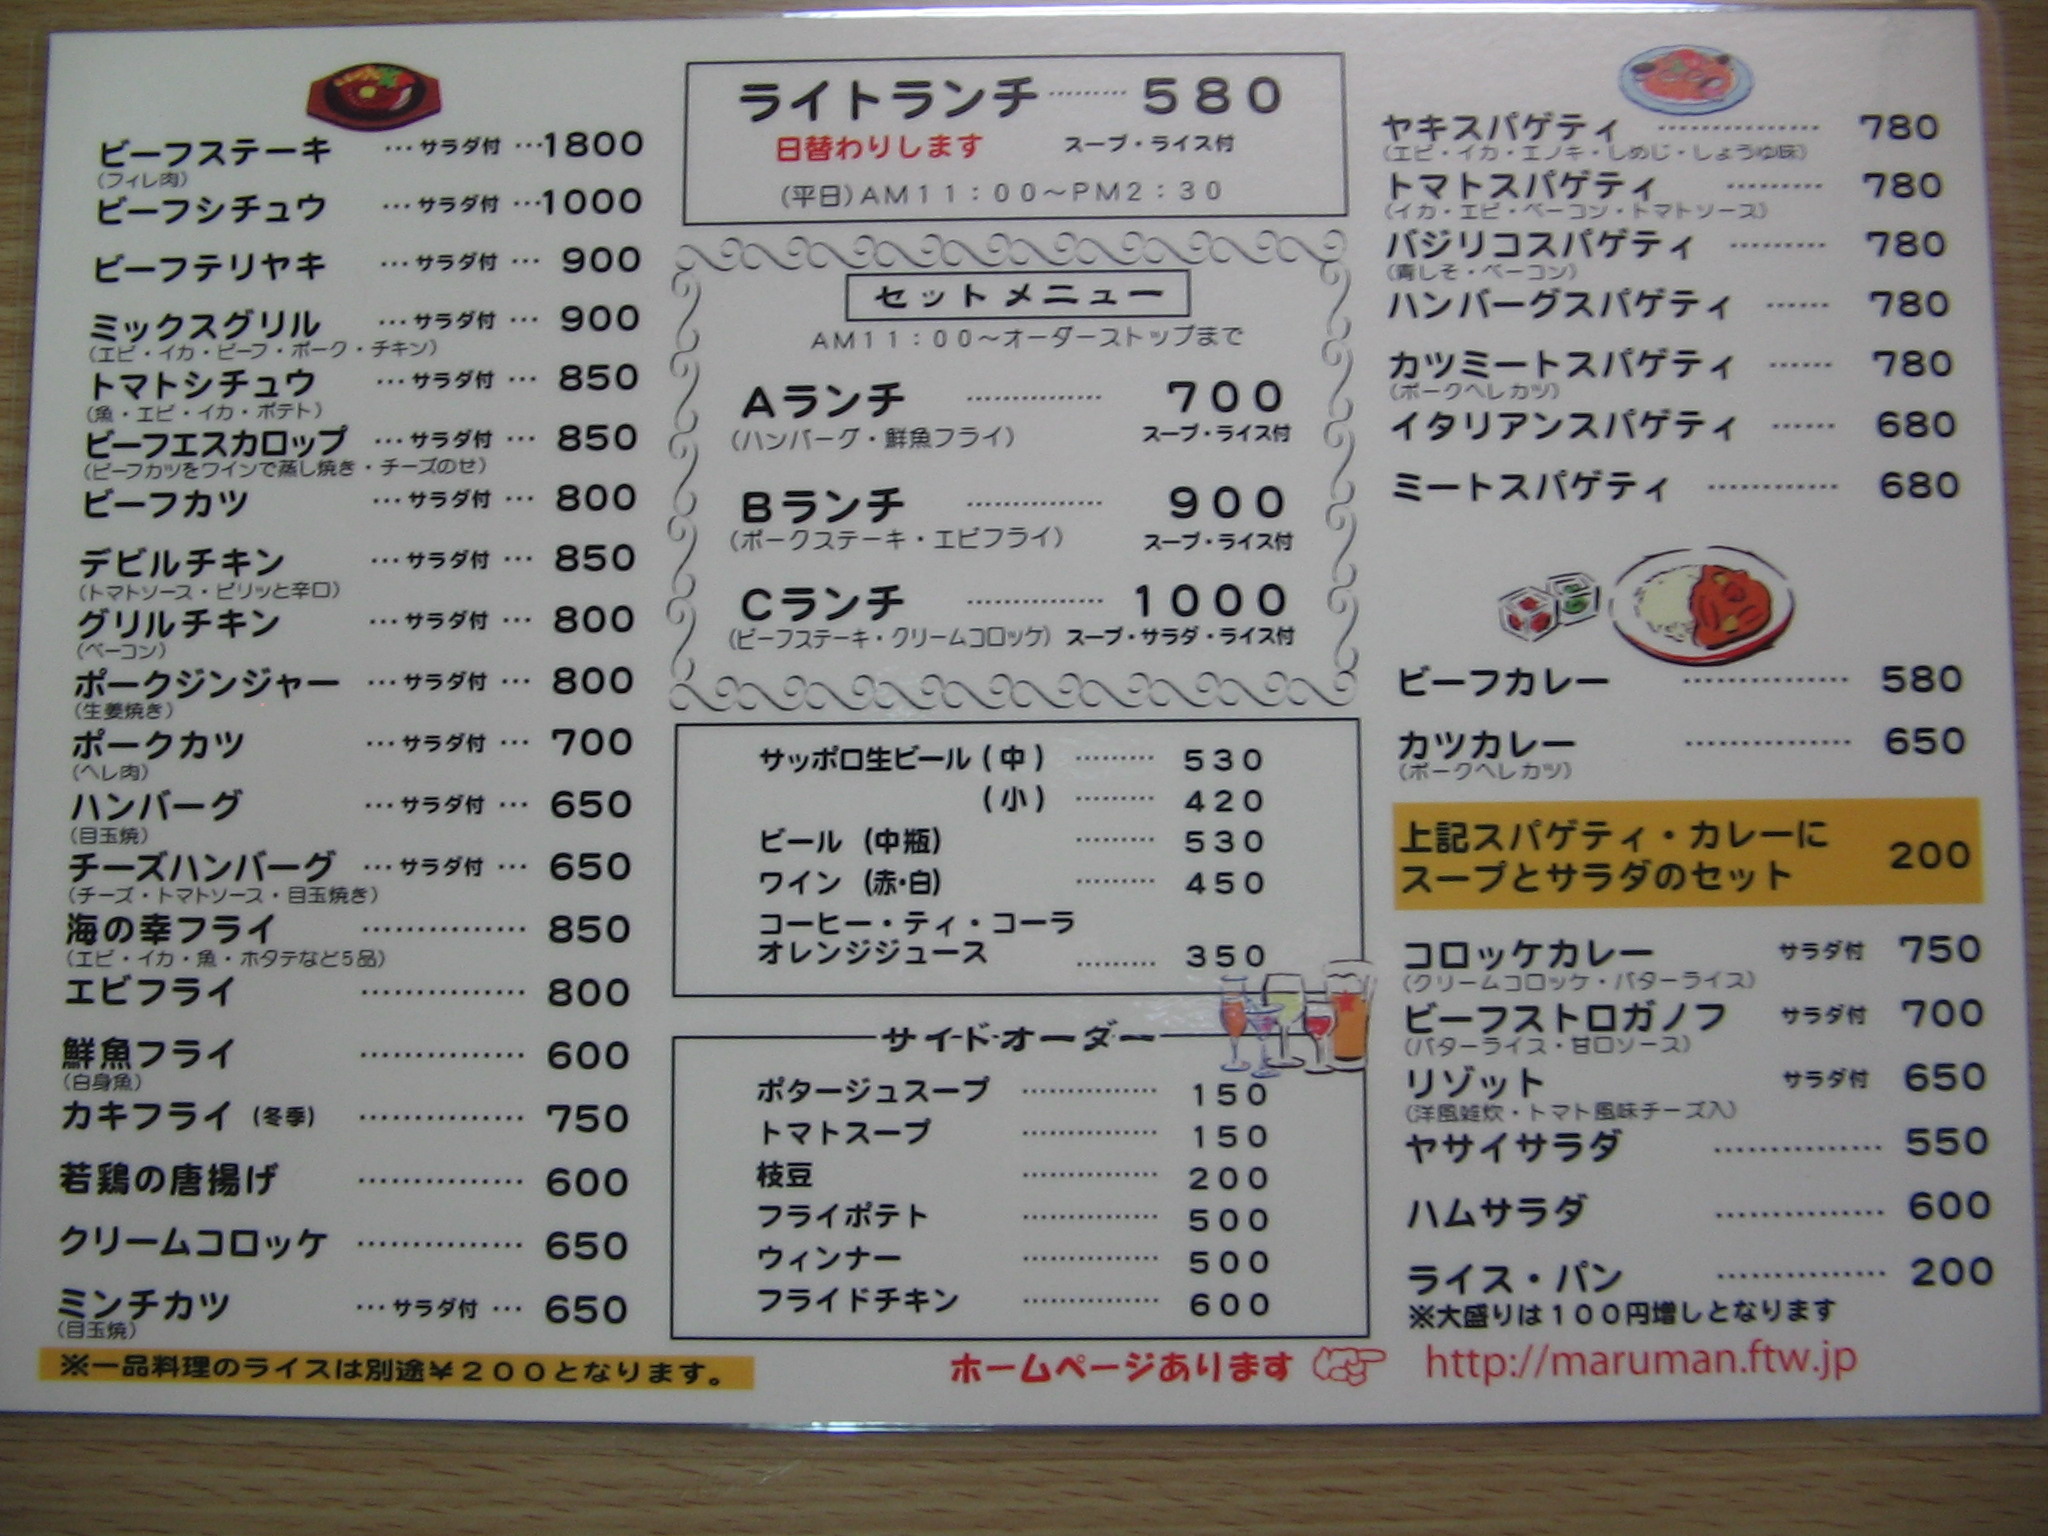 ビーフステーキ …サラダ付…1800
(フィレ肉)
ビーフシチュウ …サラダ付…1000
ビーフテリヤキ …サラダ付… 900
ミックスグリル …サラダ付… 900
(エビ・イカ・ビーフ・ポーク・チキン)
トマトシチュウ …サラダ付… 850
(魚・エビ・イカ・ポテト)
ビーフエスカロップ …サラダ付… 850
(ビーフカツをワインで蒸し焼き・チーズのせ)
ビーフカツ …サラダ付… 800
デビルチキン …サラダ付… 850
(トマトソース・ピリッと辛口)
グリルチキン …サラダ付… 800
(ベーコン)
ポークジンジャー …サラダ付… 800
(生姜焼き)
ポークカツ …サラダ付… 700
(ヘレ肉)
ハンバーグ …サラダ付… 650
(目玉焼)
チーズハンバーグ …サラダ付… 650
(チーズ・トマトソース・目玉焼き)
海の幸フライ …………… 850
(エビ・イカ・魚・ホタテなど5品)
エビフライ …………… 800
鮮魚フライ …………… 600
(白身魚)
カキフライ(冬季) …………… 750
若鶏の唐揚げ …………… 600
クリームコロッケ …………… 650
ミンチカツ …サラダ付… 650
(目玉焼)
※一品料理のライスは別途¥200となります。
ライトランチ ……… 580
日替わりします スープ・ライス付
(平日)AM11:00～PM2:30
セットメニュー
AM11:00～オーダーストップまで
Aランチ …………… 700
(ハンバーグ・鮮魚フライ) スープ・ライス付
Bランチ …………… 900
(ポークステーキ・エビフライ) スープ・ライス付
Cランチ …………… 1000
(ビーフステーキ・クリームコロッケ) スープ・サラダ・ライス付
サッポロ生ビール(中) ……… 530
(小) ……… 420
ビール (中瓶) ……… 530
ワイン (赤・白) ……… 450
コーヒー・ティ・コーラ
オレンジジュース ……… 350
サイドオーダー
ポタージュスープ …………… 150
トマトスープ …………… 150
枝豆 …………… 200
フライポテト …………… 500
ウィンナー …………… 500
フライドチキン …………… 600
ホームページあります
ヤキスパゲティ …………… 780
(エビ・イカ・エノキ・しめじ・しょうゆ味)
トマトスパゲティ ……… 780
(イカ・エビ・ベーコン・トマトソース)
バジリコスパゲティ ……… 780
(青しそ・ベーコン)
ハンバーグスパゲティ …… 780
カツミートスパゲティ …… 780
(ポークヘレカツ)
イタリアンスパゲティ …… 680
ミートスパゲティ ………… 680
ビーフカレー …………… 580
カツカレー …………… 650
(ポークヘレカツ)
上記スパゲティ・カレーに
スープとサラダのセット 200
コロッケカレー サラダ付 750
(クリームコロッケ・バターライス)
ビーフストロガノフ サラダ付 700
(バターライス・甘口ソース)
リゾット サラダ付 650
(洋風雑炊・トマト風味チーズ入)
ヤサイサラダ …………… 550
ハムサラダ …………… 600
ライス・パン …………… 200
※大盛りは100円増しとなります
http://maruman.ftw.jp